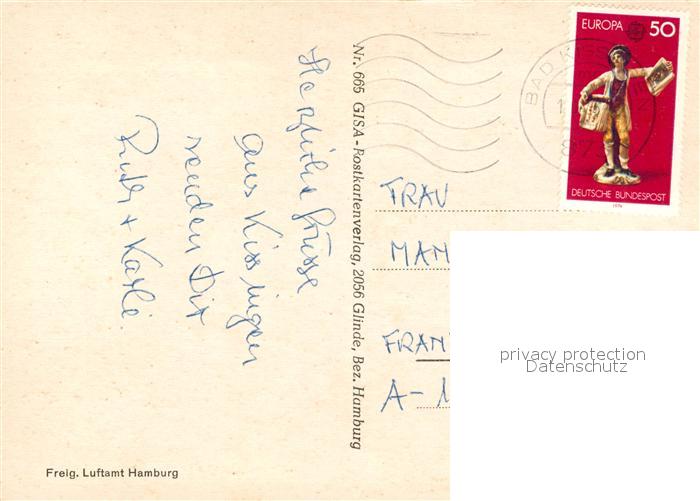 Herzliche Grüsse
aus Kissingen
senden Dir
Ruth + Karli.
Nr. 665 GISA-Postkartenverlag, 2056 Glinde, Bez. Hamburg
EUROPA 50
DEUTSCHE BUNDESPOST
1976
BAD KISS
FRAU
MAM
FRAN
A-1
privacy protection
Datenschutz
Freig. Luftamt Hamburg